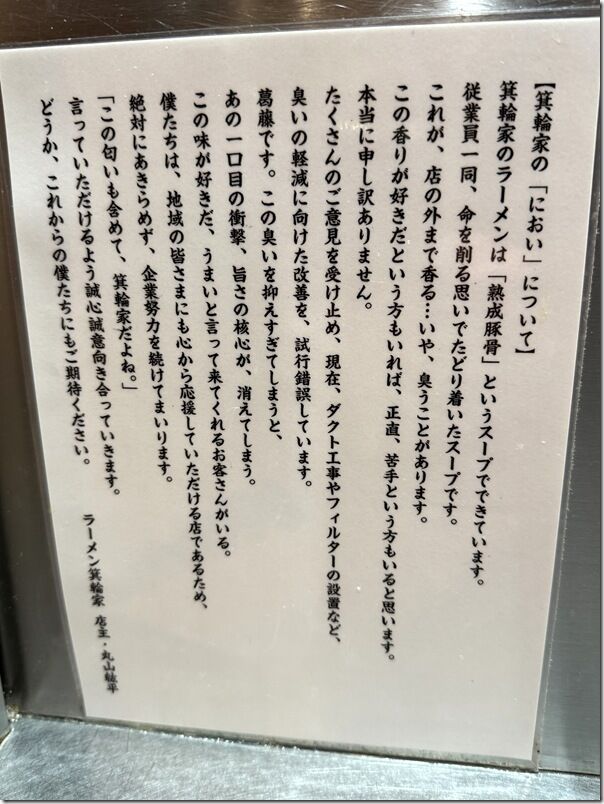 【箕輪家の「におい」について】
箕輪家のラーメンは「熟成豚骨」というスープでできています。
従業員一同、命を削る思いでたどり着いたスープです。
これが、店の外まで香る…いや、臭うことがあります。
この香りが好きだという方もいれば、正直、苦手という方もいると思います。
本当に申し訳ありません。
たくさんのご意見を受け止め、現在、ダクト工事やフィルターの設置など、
臭いの軽減に向けた改善を、試行錯誤しています。
葛藤です。この臭いを抑えすぎてしまうと、
あの一口目の衝撃、旨さの核心が、消えてしまう。
この味が好きだ、うまいと言って来てくれるお客さんがいる。
僕たちは、地域の皆さまにも心から応援していただける店であるため、
絶対にあきらめず、企業努力を続けてまいります。
「この匂いも含めて、箕輪家だよね。」
言っていただけるよう誠心誠意向き合っていきます。
どうか、これからの僕たちにもご期待ください。
ラーメン箕輪家 店主・丸山紘平